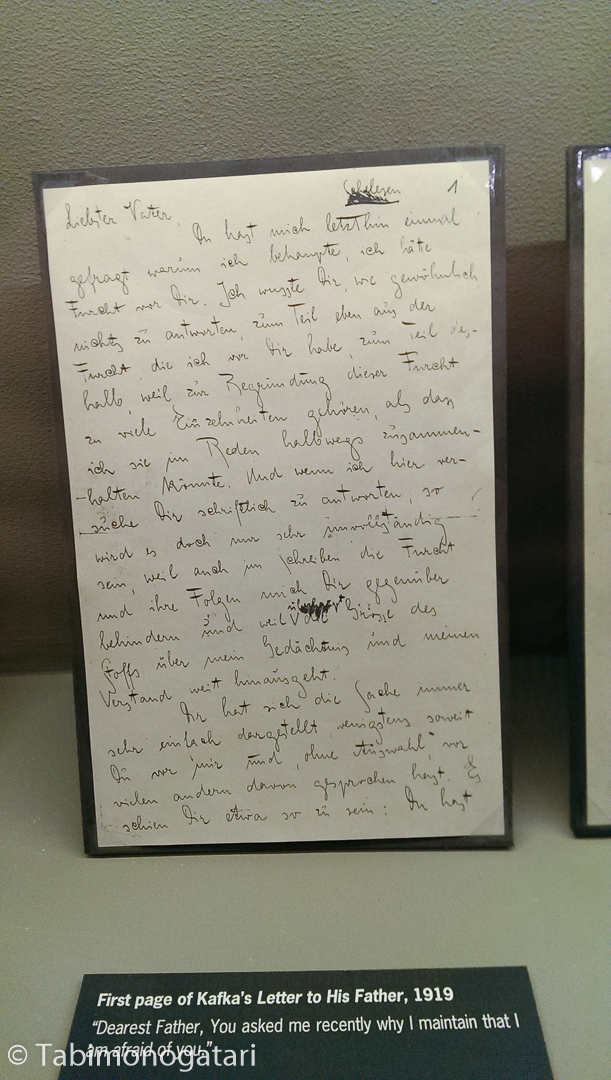 Schelesen 1
Liebster Vater,
Du hast mich letzthin einmal
gefragt, warum ich behaupte, ich hätte
Furcht vor Dir. Ich wusste Dir, wie gewöhnlich,
nichts zu antworten, zum Teil eben aus der
Furcht, die ich vor Dir habe, zum Teil des-
halb, weil zur Begründung dieser Furcht
zu viele Einzelheiten gehören, als dass
ich sie im Reden halbwegs zusammen-
halten könnte. Und wenn ich hier ver-
suche Dir schriftlich zu antworten, so
wird es doch nur sehr unvollständig
sein, weil auch im Schreiben die Furcht
und ihre Folgen mich Dir gegenüber
behindern und weil überhaupt die Grösse des
Stoffs über mein Gedächtnis und meinen
Verstand weit hinausgeht.
Dir hat sich die Sache immer
sehr einfach dargestellt, wenigstens soweit
Du vor mir und, ohne Auswahl, vor
vielen andern davon gesprochen hast. Es
schien Dir etwa so zu sein: Du hast
First page of Kafka's Letter to His Father, 1919
"Dearest Father, You asked me recently why I maintain that I
am afraid of you."
© Tabimonogatari